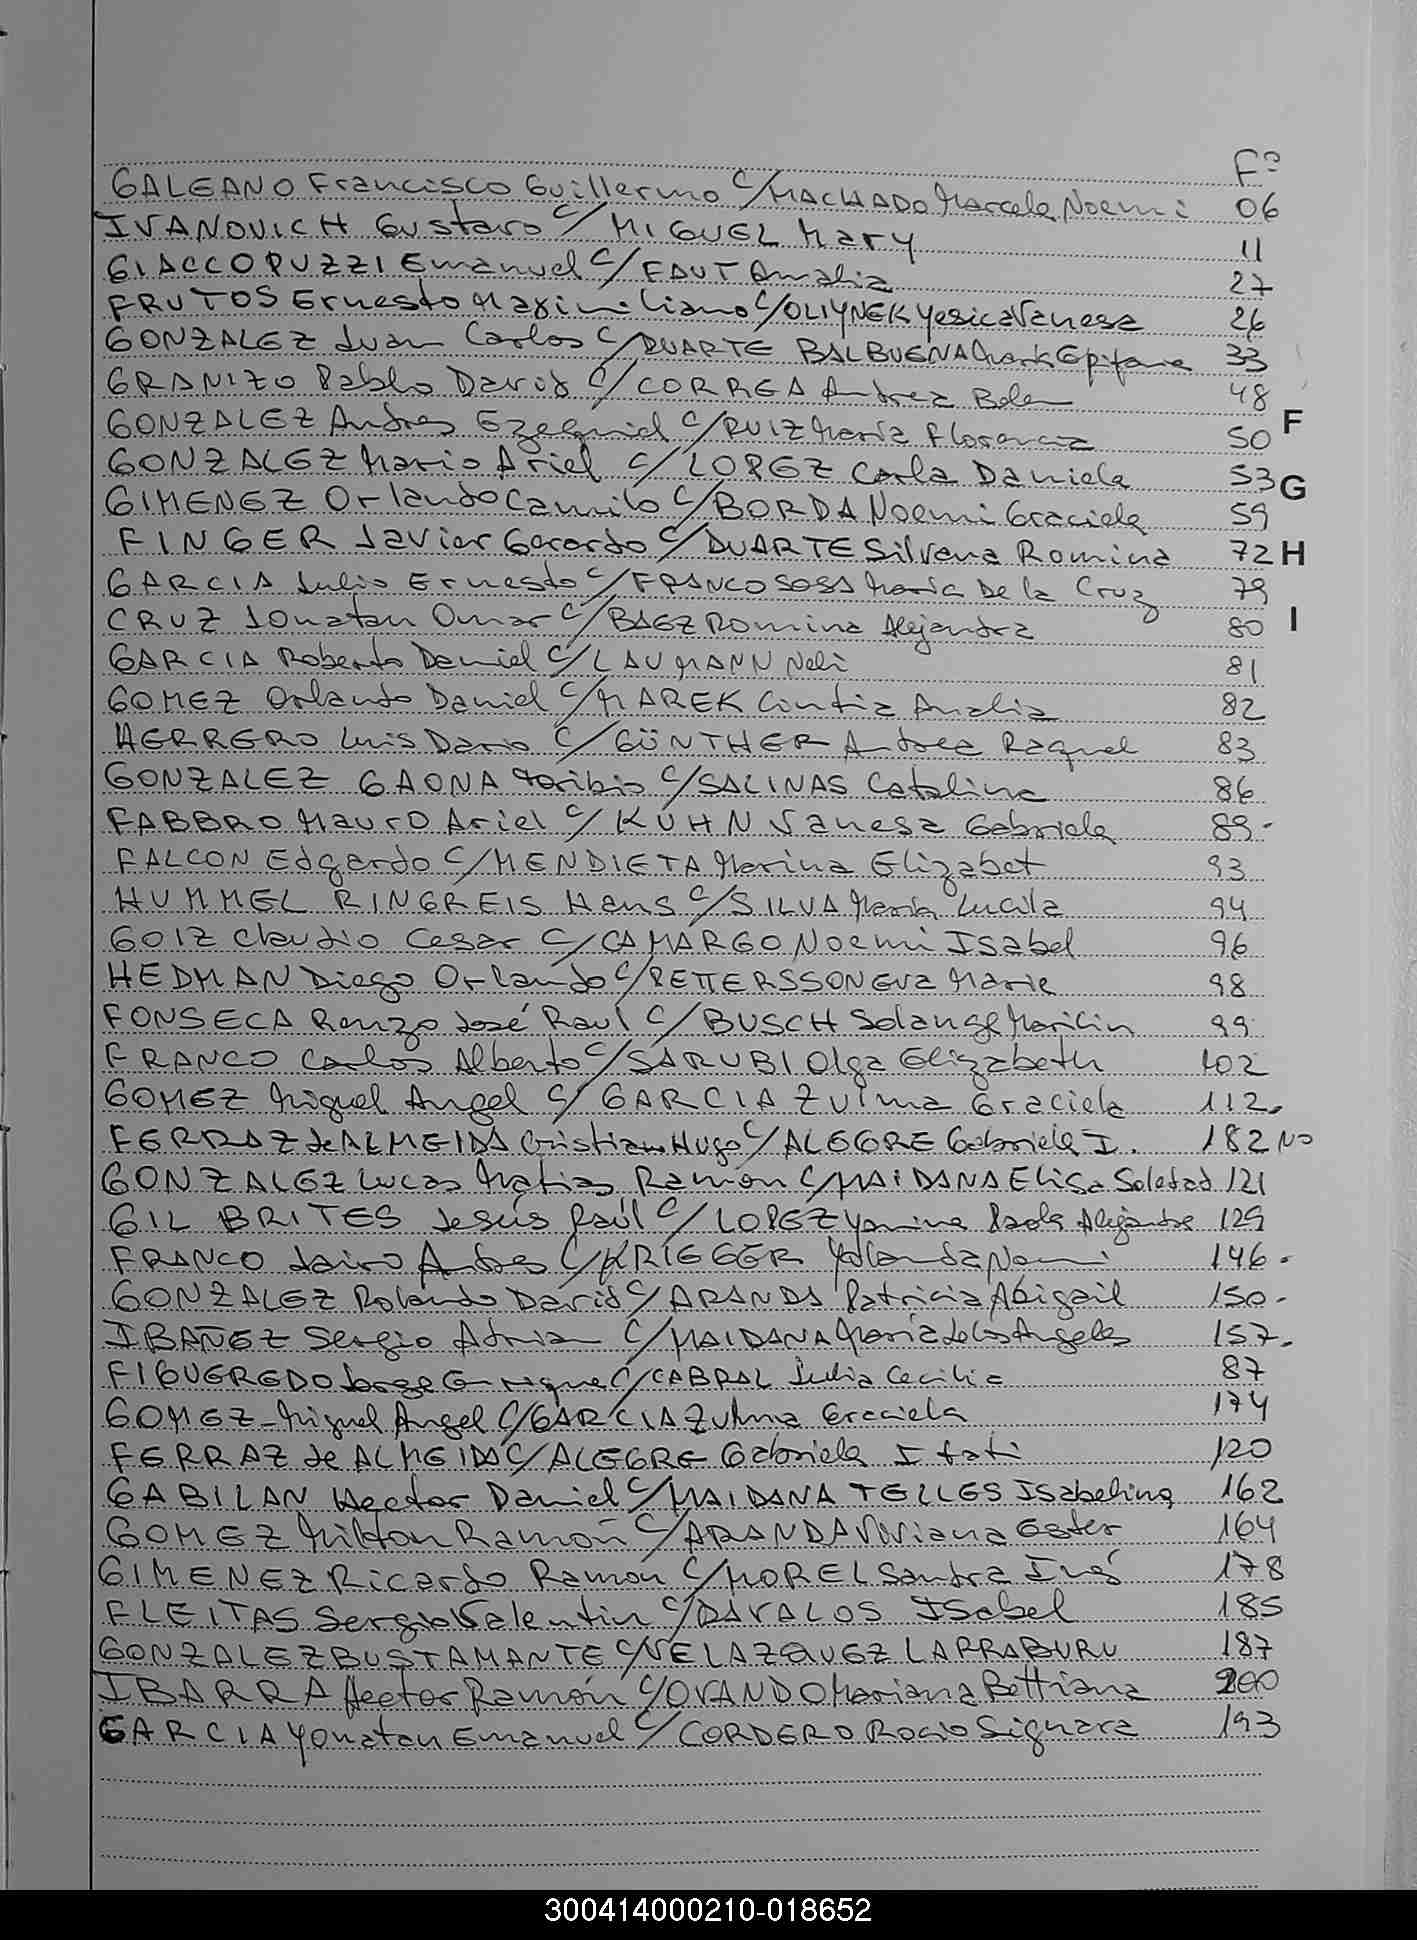 Fº
GALEANO Francisco Guillermo C/MACHADO Marcela Noemi 06
IVANOVICH Gustavo C/MIGUEL Mary 11
GIACCOPUZZI Emanuel C/FAUT Amalia 27
FRUTOS Ernesto Maximiliano C/OLIYNEK Yesica Vanesa 26
GONZALEZ Juan Carlos C/DUARTE BALBUENA Epifania 33
GRANIZO Pablo David C/CORREA Andrea Belen 48
F
GONZALEZ Andres Ezequiel C/RUIZ María Florencia 50
GONZALEZ Mario Ariel C/LOPEZ Carla Daniela 53
G
GIMENEZ Orlando Camilo C/BORDA Noemi Graciela 59
FINGER Javier Gerardo C/DUARTE Silvana Romina 72
H
GARCIA Julio Ernesto C/FRANCO SOSA María De la Cruz 79
CRUZ Jonatan Omar C/BAEZ Romina Alejandra 80
I
GARCIA Roberto Daniel C/LAUMANN Neli 81
GOMEZ Orlando Daniel C/MAREK Cintia Analia 82
HERRERO Luis Dario C/GÜNTHER Andrea Raquel 83
GONZALEZ GAONA Toribio C/SALINAS Catalina 86
FABBRO Mauro Ariel C/KUHN Vanesa Gabriela 89-
FALCON Edgardo C/MENDIETA Marina Elizabet 93
HUMMEL RINGREIS Hans C/SILVA María Lucila 94
GOIZ Claudio Cesar C/CAMARGO Noemi Isabel 96
HEDMAN Diego Orlando C/PETTERSSON Eva Marie 98
FONSECA Renzo José Raul C/BUSCH Solange Marilin 99
FRANCO Carlos Alberto C/SARUBI Olga Elizabeth 102
GOMEZ Miguel Angel C/GARCIA Zulma Graciela 112.
FERRAZ de ALMEIDA Cristian Hugo C/ALEGRE Gabriela I. 182 NO
GONZALEZ Lucas Matias Ramón C/MAIDANA Elisa Soledad 121
GIL BRITES Jesús Raúl C/LOPEZ Yanina Paola Alejandra 129
FRANCO Jairo Andres C/KRIEGER Yolanda Noemi 146-
GONZALEZ Rolando David C/ARANDA Patricia Abigail 150-
IBAÑEZ Sergio Adrian C/MAIDANA María de los Angeles 157.
FIGUEREDO Jorge Enrique C/CABRAL Julia Cecilia 87
GOMEZ-Miguel Angel C/GARCIA Zulma Graciela 174
FERRAZ de ALMEIDA C/ALEGRE Gabriela Itati 120
GABILAN Hector Daniel C/MAIDANA TELLES Isabelina 162
GOMEZ Milton Ramon C/ARANDA Viviana Ester 164
GIMENEZ Ricardo Ramon C/MOREL Sandra Inés 178
FLEITAS Sergio Valentin C/DAVALOS Isabel 185
GONZALEZ BUSTAMANTE C/VELAZQUEZ LARRABURU 187
IBARRA Hector Ramón C/OVANDO Mariana Bettiana 200
GARCIA Yonatan Emanuel C/CORDERO Rocio Signara 193
300414000210-018652